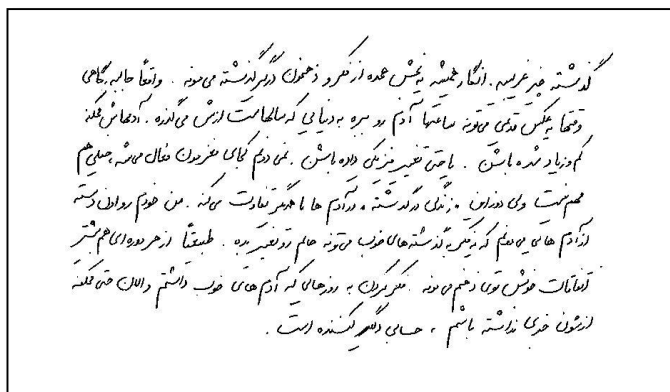 گذشته چیز غریبیه. انگار همیشه یه بخش عمده از فکر و ذهنمون درگیر گذشته می‌مونه. واقعاً جالبه گاهی
وقتها یه عکس قدیمی می‌تونه ساعتها آدم رو ببره به دنیایی که سالهاست ازش می‌گذره. آدمهاش ممکنه
کم و زیاد شده باشن. یا حتی تغییر فیزیکی داده باشن. نمی دونم کجای مغزمون فعال می‌شه خیلی هم
مهم نیست ولی دوز این «زندگی در گذشته» در آدم ها با همدیگر تفاوت می‌کنه. من خودم رو از اون دسته
از آدم هایی می‌دونم که فکر به گذشته‌های خوب می‌تونه حالم رو تغییر بده. طبیعتاً از هر دوره‌ای هم بیشتر
اتفاقات خوش توی ذهنم می‌مونه. فکر کردن به روزهایی که آدم‌های خوب داشتم و الان حتی ممکنه
ازشون خبری نداشته باشم، حسابی دلگیر کننده است.